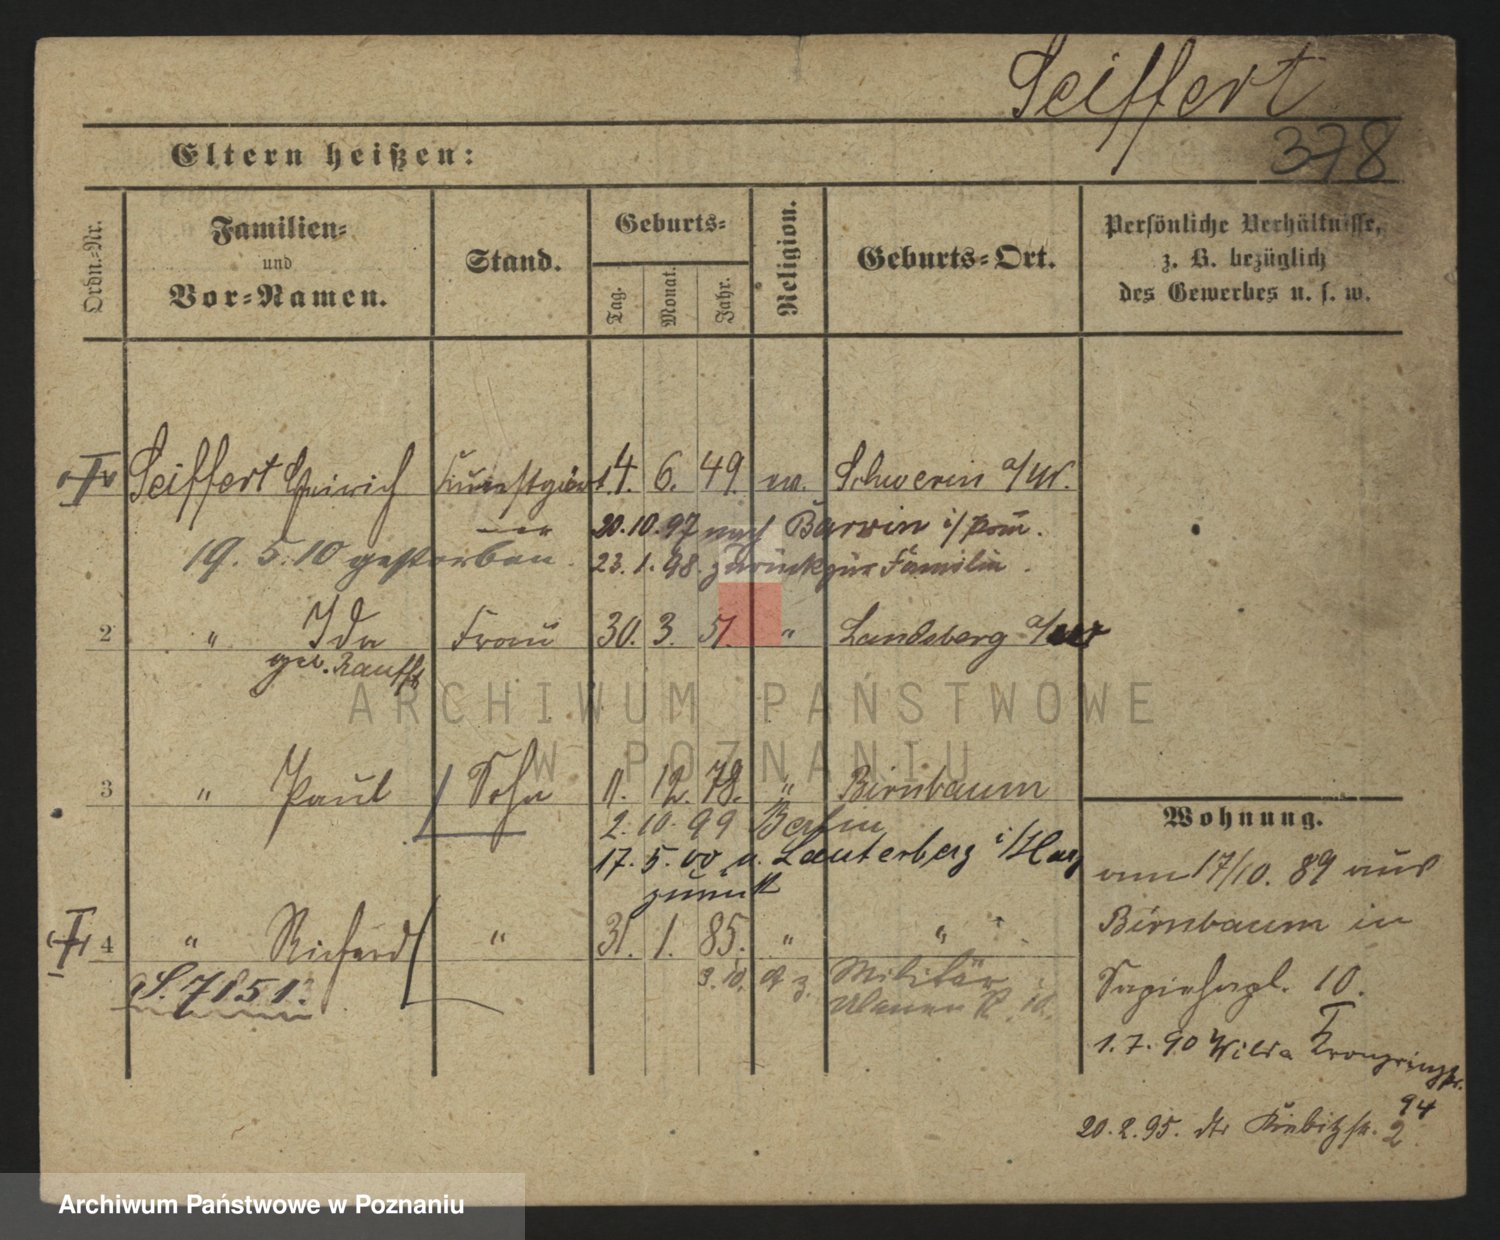 Seiffert
378
Eltern heißen:
Ordn.-Nr.
Familien-
und
Vor-Namen.
Stand.
Geburts-
Tag.
Monat.
Jahr.
Religion.
Geburts-Ort.
Persönliche Verhältnisse,
z. B. bezüglich
des Gewerbes u. s. w.
Seiffert Heinrich Kunstgärt 14. 6. 49. ev. Schwerin a/W.
ner 20.10.97 nach Barvin i/ Pom.
19. 5. 10 gestorben. 23. 1. 98. zurück zur Familie.
2 " Ida Frau 30. 3. 51. " Landsberg a/W
geb.
3 " Paul Sohn 11. 12. 78. " Birnbaum
2. 10. 99 Berlin
17. 5. 00 v. Lauterberg i/Harz
zurück
4 " Richard " 31. 1. 85. " "
S. 7851. 3. 10. z. Militär
Ulanen R. 10.
Wohnung.
am 17/10. 89 aus
Birnbaum in
Sapiehapl. 10.
1. 7. 90 Wilda Kronprinzstr.
94
20. 2. 95. dto Kiebitzstr. 2
ARCHIWUM PAŃSTWOWE
W POZNANIU
Archiwum Państwowe w Poznaniu